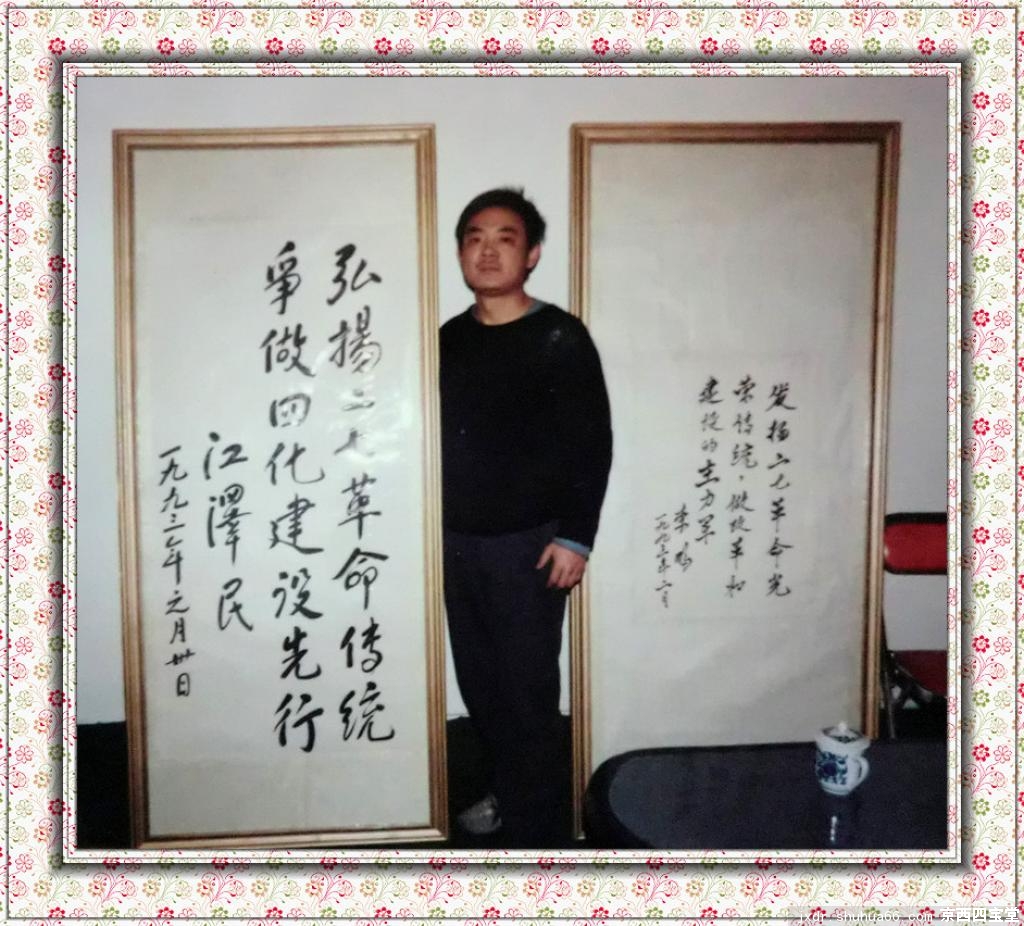 弘揚二七革命传统
爭做四化建设先行
江澤民
一九九三年元月卅日
发扬二七革命光
荣传统，做改革和
建设的主力军
李鹏
一九九三年二月
jxdr.shuhua66.com 京西四宝堂